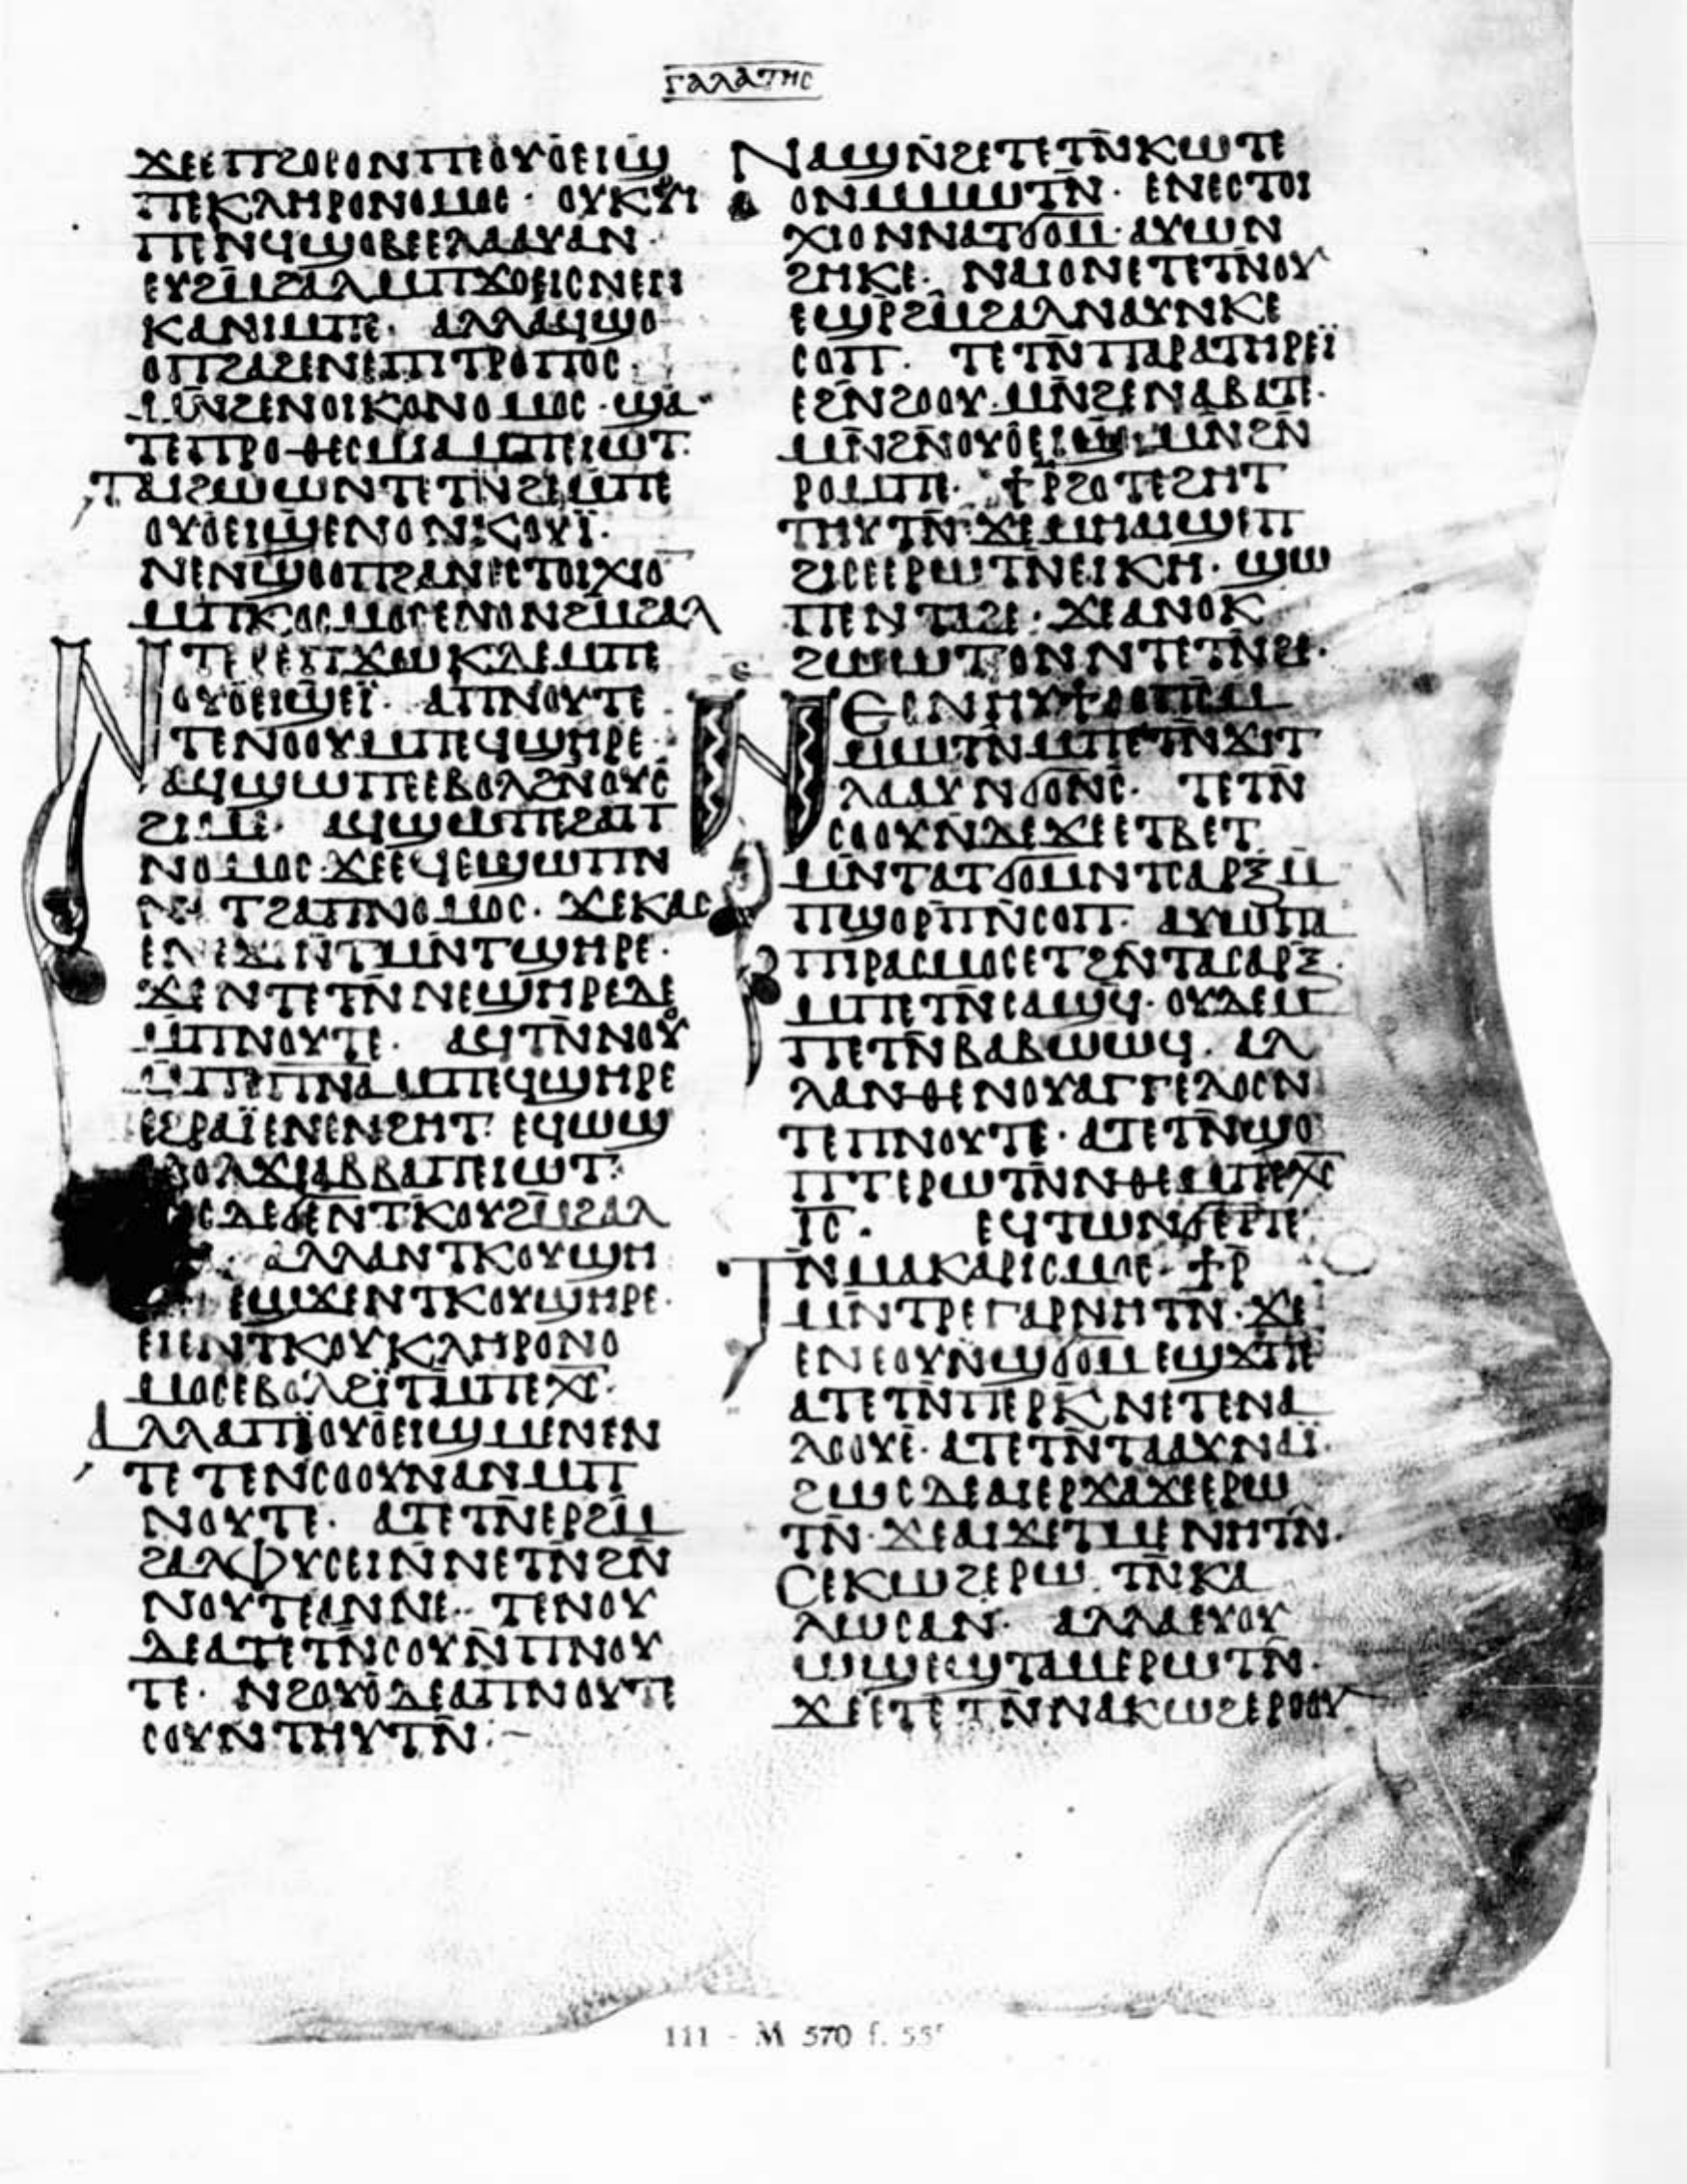 ⲅⲁⲗⲁⲧⲏⲥ
ϫⲉⲉⲡϩⲟⲥⲟⲛⲡⲉⲟⲩⲟⲉⲓϣ
ⲡⲉⲕⲗⲏⲣⲟⲛⲟⲙⲟⲥ· ⲟⲩⲕⲟⲩⲓ
ⲡⲉⲛϥϣⲟⲃⲉⲉⲗⲁⲁⲩⲁⲛ·
ⲉⲩϩⲙ̄ϩⲁⲗⲙⲡϫⲟⲉⲓⲥⲛⲉⲛ
ⲕⲁⲛⲓⲙⲡⲉ· ⲁⲗⲗⲁϥϣⲟ
ⲟⲡϩⲁϩⲉⲛⲉⲡⲓⲧⲣⲟⲡⲟⲥ·
ⲙⲛ̄ϩⲉⲛⲟⲓⲕⲟⲛⲟⲙⲟⲥ·ϣⲁ
ⲧⲉⲡⲣⲟⲑⲉⲥⲙⲓⲁⲙⲡⲉⲓⲱⲧ·
ⲧⲁⲓϩⲱⲱⲛⲧⲉⲧⲛ̄ϩⲉⲙ̄ⲡⲉ
ⲟⲩⲟⲉⲓϣⲉⲛⲟⲛⲕⲟⲩⲓ̈·
ⲛⲉⲛϣⲟⲟⲡϩⲁⲛⲉⲥⲧⲟⲓⲭⲓⲟ̄
ⲙⲡⲕⲟⲥⲙⲟⲥⲉⲛⲟⲛϩⲙϩⲁⲗ
ⲛⲧⲉⲣⲉⲡϫⲱⲕⲇⲉⲙⲡⲉ
ⲟⲩⲟ̄ⲉⲓϣⲉⲓ̈· ⲁⲡⲛⲟⲩⲧⲉ
ⲧⲉⲛⲟⲟⲩⲙⲡⲉϥϣⲏⲣⲉ·
ⲁϥϣⲱⲡⲉⲉⲃⲟⲗϩⲛ̄ⲟⲩⲥ
ϩⲓⲙⲉ· ⲁϥϣⲱⲡⲉϩⲁⲡ
ⲛⲟⲙⲟⲥ·ϫⲉⲉϥⲉϣⲱⲡⲛ
ⲛⲉⲧϩⲁⲡⲛⲟⲙⲟⲥ· ϫⲉⲕⲁⲥ
ⲉⲛⲉϫⲓⲛ̄ⲧⲙⲛⲧϣⲏⲣⲉ·
ϫⲉⲛⲧⲉⲧⲛ̄ⲛⲉϣⲏⲣⲉⲇⲉ
ⲙ̄ⲡⲛⲟⲩⲧⲉ· ⲁϥⲧⲛ̄ⲛⲟⲟⲩ
ⲙ̄ⲡⲉⲡⲛ̄ⲁⲙⲡⲉϥϣⲏⲣⲉ
ⲉϩⲣⲁⲓ̈ⲉⲛⲉⲛϩⲏⲧ· ⲉϥⲱϣ
ⲃⲟⲗϫⲓⲁⲃⲃⲁⲡⲉⲓⲱⲧ·
ⲇⲉϭⲉⲛⲧⲕⲟⲩϩⲙ̄ϩⲁⲗ
ⲁⲗⲗⲁⲛⲧⲕⲟⲩϣⲏ
ⲉϣϫⲉⲛⲧⲕⲟⲩϣⲏⲣⲉ·
ⲉⲓⲉⲛⲧⲕⲟⲩⲕⲗⲏⲣⲟⲛⲟ
ⲙⲟⲥⲉⲃⲟⲗϩⲓ̈ⲧⲙⲡⲉⲭ̄ⲥ̄·
ⲁⲗⲗⲁⲡⲓⲟⲩⲟ̄ⲉⲓϣⲙⲉⲛⲉⲛ
ⲧⲉⲧⲉⲛⲥⲟⲟⲩⲛⲁⲛⲙⲡ
ⲛⲟⲩⲧⲉ· ⲁⲧⲉⲧⲛ̄ⲉⲣϩⲙ̄
ϩⲁⲗⲫⲩⲥⲉⲓⲛ̄ⲛⲉⲧⲛ̄ϩⲛ̄
ⲛⲟⲩⲧⲉⲁⲛⲛⲉ· ⲧⲉⲛⲟⲩ
ⲇⲉⲁⲧⲉⲧⲛ̄ⲥⲟⲩⲛ̄ⲡⲛⲟⲩ
ⲧⲉ· ⲛϩⲟⲩⲟ̄ⲇⲉⲁⲡⲛⲟⲩⲧⲉ
ⲥⲟⲩⲛⲧⲏⲩⲧⲛ̄:~
ⲛⲁϣⲛ̄ϩⲉⲧⲉⲧⲛ̄ⲕⲱⲧⲉ
ⲟⲛⲙⲙⲱⲧⲛ̄· ⲉⲛⲉⲥⲧⲟⲓ
ⲭⲓⲟⲛⲛⲁⲧϭⲟⲙ·ⲁⲩⲱⲛ
ϩⲏⲕⲉ· ⲛⲁⲓⲟⲛⲉⲧⲉⲧⲛ̄ⲟⲩ
ⲉϣⲣ̄ϩⲙ̄ϩⲁⲗⲛⲁⲩⲛⲕⲉ
ⲥⲟⲡ· ⲧⲉⲧⲛ̄ⲡⲁⲣⲁⲧⲏⲣⲉⲓ̈
ⲉϩⲛ̄ϩⲟⲟⲩ·ⲙⲛ̄ϩⲉⲛⲁⲃⲁⲧⲉ·
ⲙⲛ̄ϩⲛ̄ⲟⲩⲟ̄ⲉⲓϣ·ⲙⲛ̄ϩⲛ̄
ⲣⲟⲙⲡⲉ· ϯⲣ̄ϩⲟⲧⲉϩⲏⲧ
ⲧⲏⲩⲧⲛ̄·ϫⲉⲙⲏⲁⲓϣⲉⲡ
ϩⲓⲥⲉⲉⲣⲱⲧⲛ̄ⲉⲓⲕⲏ· ϣⲱ
ⲡⲉⲛⲧⲁϩⲉ· ϫⲉⲁⲛⲟⲕ
ϩⲱⲱⲧⲟⲛⲛⲧⲉⲧⲛ̄ϩⲉ·
ⲛⲉⲥⲛⲏⲩϯⲥⲟⲡⲥ̄ⲙ
ⲙⲱⲧⲛ̄ⲙⲡⲉⲧⲛ̄ϫⲓⲧ
ⲗⲁⲁⲩⲛϭⲟⲛⲥ̄· ⲧⲉⲧⲛ̄
ⲥⲟⲟⲩⲛⲇⲉϫⲉⲉⲧⲃⲉⲧ
ⲙⲛ̄ⲧⲁⲧϭⲟⲙⲛⲧⲥⲁⲣⲝⲙ̄
ⲡϣⲟⲣⲡⲛ̄ⲥⲟⲡ· ⲁⲩⲱⲡⲁ
ⲡⲓⲣⲁⲥⲙⲟⲥⲉⲧϩⲛⲧⲁⲥⲁⲣⲝ·
ⲙⲡⲉⲧⲛ̄ⲥⲁϣϥ· ⲟⲩⲇⲉⲙ̄
ⲡⲉⲧⲛ̄ⲃⲁⲃⲱⲱϥ· ⲁⲗ
ⲗⲁⲛⲑⲉⲛⲟⲩⲁⲅⲅⲉⲗⲟⲥⲛ
ⲧⲉⲡⲛⲟⲩⲧⲉ· ⲁⲧⲉⲧⲛ̄ϣⲟ
ⲡⲧⲉⲣⲱⲧⲛ̄ⲛⲑⲉⲙⲡⲉⲭ̄ⲥ̄
ⲓ̄ⲥ̄· ⲉϥⲧⲱⲛϭⲉⲡⲉ
ⲧⲛ̄ⲙⲁⲕⲁⲣⲓⲥⲙⲟⲥ· ϯⲣ̄
ⲙⲛ̄ⲧⲣⲉⲅⲁⲣⲛⲏⲧⲛ̄·ϫⲉ
ⲉⲛⲉⲟⲩⲛ̄ϣϭⲟⲙⲉϣϫⲡⲉ
ⲁⲧⲉⲧⲛ̄ⲡⲉⲣⲕ̄ⲛⲉⲧⲉⲛⲃⲁ
ⲗⲟⲟⲩⲉ· ⲁⲧⲉⲧⲛ̄ⲧⲁⲁⲩⲛⲁⲓ̈·
ϩⲱⲥⲇⲉⲁⲓⲉⲣϫⲁϫⲉⲉⲣⲱ
ⲧⲛ̄·ϫⲉⲁⲓϫⲉⲧⲙⲉⲛⲏⲧⲛ̄·
ⲥⲉⲕⲱϩⲉⲣⲱⲧⲛ̄ⲕⲁ
ⲗⲱⲥⲁⲛ· ⲁⲗⲗⲁⲉⲩⲟⲩ
ⲱϣⲉϣⲧⲁⲙⲉⲣⲱⲧⲛ̄·
ϫⲉⲉⲧⲉⲧⲛ̄ⲛⲁⲕⲱϩⲉⲣⲟⲟⲩ
111 - M 570 f. 55ʳ